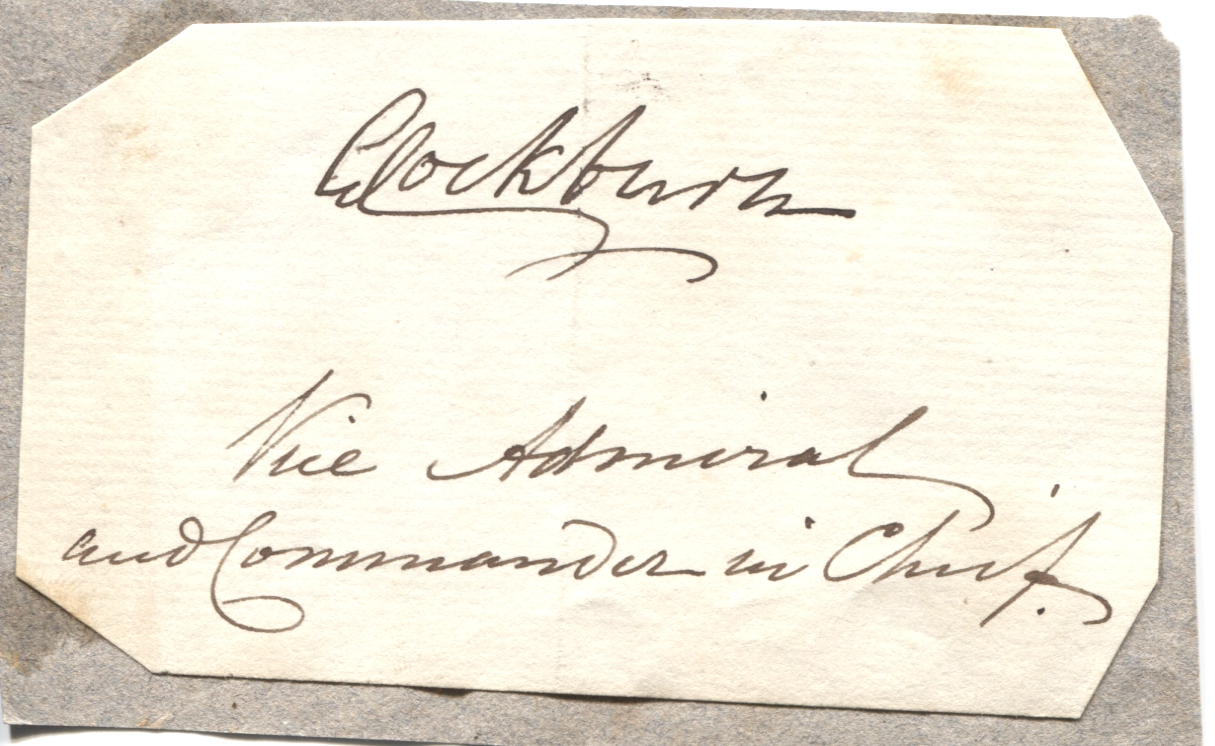 GCockburn
Vice Admiral
and Commander in Chief.